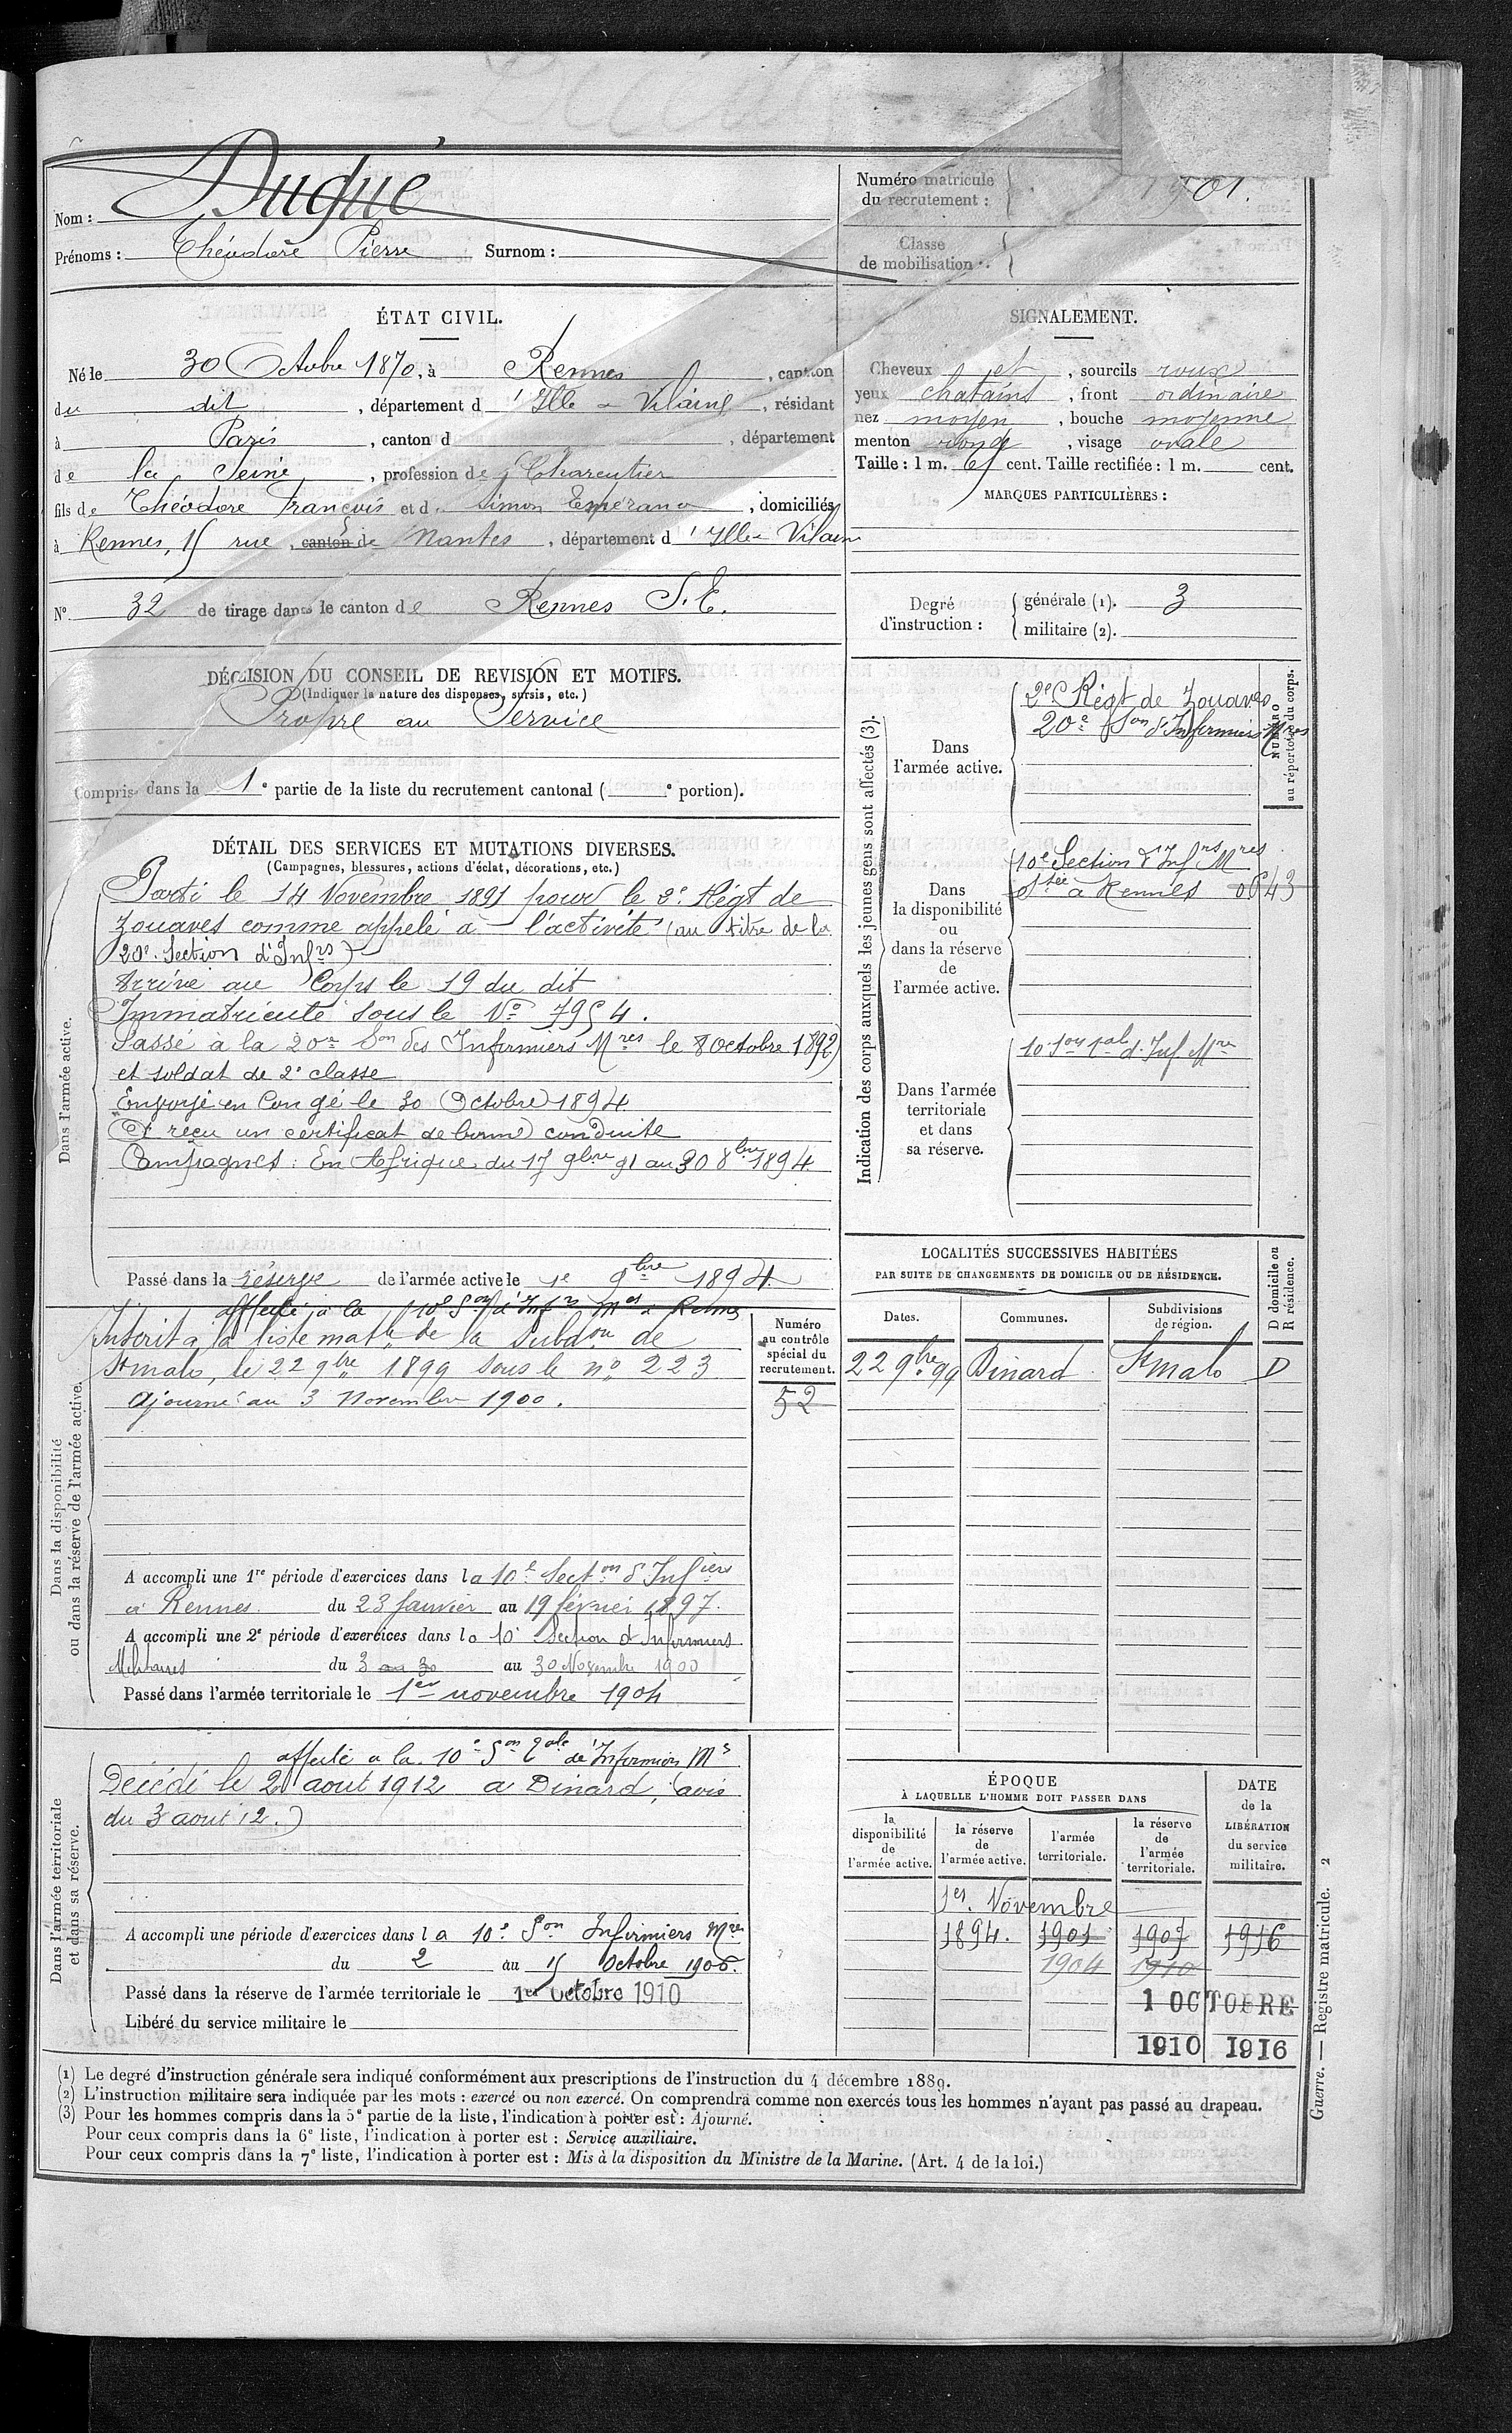 Décédé
Nom : Dugué
Prénoms : Théodore Pierre Surnom :
Numéro matricule
du recrutement : 1901.
Classe
de mobilisation :
ÉTAT CIVIL.
Né le 30 Octobre 1870, à Rennes, canton
du dit, département d'Ille-Vilaine, résidant
à Paris, canton d , département
de la Seine, profession de Charcutier
fils de Théodore François et d. Simon , domiciliés
à Rennes, 15 rue, canton de Nantes, département d'Ille-Vilaine
N° 32 de tirage dans le canton de Rennes S. E.
SIGNALEMENT.
Cheveux et, sourcils roux
yeux chatains, front ordinaire
nez moyen, bouche moyenne
menton rond, visage ovale
Taille : 1 m. 65 cent. Taille rectifiée : 1 m. cent.
MARQUES PARTICULIÈRES :
Degré
d'instruction :
générale (1). 3
militaire (2).
DÉCISION DU CONSEIL DE REVISION ET MOTIFS.
(Indiquer la nature des dispenses, sursis, etc.)
Propre au Service
Compris dans la 1e partie de la liste du recrutement cantonal ( e portion).
DÉTAIL DES SERVICES ET MUTATIONS DIVERSES.
(Campagnes, blessures, actions d'éclat, décorations, etc.)
Dans l'armée active.
Parti le 14 Novembre 1891 pour le 2e Régt de
Zouaves comme appelé à l'activité (au titre de la
20e Section d'Infrs)
Arrivé au Corps le 19 du dit
Immatriculé sous le No 7954.
Passé à la 20e Son des Infirmiers Mres le 8 Octobre 1892
et soldat de 2e classe
Envoyé en Congé le 30 Octobre 1894
A reçu un certificat de bonne conduite
Campagnes : En Afrique du 17 9bre 91 au 30 8bre 1894
Passé dans la réserve de l'armée active le 1e 9bre 1894
Indication des corps auxquels les jeunes gens sont affectés (3).
NUMÉRO
au répertoire du corps.
Dans
l'armée active.
2e Régt de Zouaves
20e Son d'Infirmiers Mres
Dans
la disponibilité
ou
dans la réserve
de
l'armée active.
10e Section d'Infrs Mres
à Rennes 0643
Dans l'armée
territoriale
et dans
sa réserve.
10 Son Tale d'Inf Mre
Dans la disponibilité
ou dans la réserve de l'armée active.
affecté à la 10e Son d'Infrs Mres à Rennes
Inscrit à la liste matle de la Subdon de
St malo, le 22 9bre 1899 sous le no 223
Ajourné au 3 Novembre 1900.
Numéro
au contrôle
spécial du
recrutement.
52
A accompli une 1re période d'exercices dans la 10e Secton d'Infiers
à Rennes du 23 Janvier au 19 février 1897.
A accompli une 2e période d'exercices dans la 10e Section d'Infirmiers
Militaires du 3 au 30 Novembre 1900
Passé dans l'armée territoriale le 1er novembre 1904
LOCALITÉS SUCCESSIVES HABITÉES
PAR SUITE DE CHANGEMENTS DE DOMICILE OU DE RÉSIDENCE.
D domicile ou
R résidence.
Dates. Communes. Subdivisions
de région.
22 9bre 99 Dinard St malo D
Dans l'armée territoriale
et dans sa réserve.
affecté à la 10e Son Tale d'Infirmiers Ms
Décédé le 2 aout 1912 a Dinard, (avis
du 3 aout 12.)
A accompli une période d'exercices dans la 10e Son Infirmiers Mres
du 2 au 15 Octobre 1906.
Passé dans la réserve de l'armée territoriale le 1er Octobre 1910
Libéré du service militaire le
ÉPOQUE
À LAQUELLE L'HOMME DOIT PASSER DANS
DATE
de la
LIBÉRATION
du service
militaire.
la
disponibilité
de
l'armée active.
la réserve
de
l'armée active.
l'armée
territoriale.
la réserve
de
l'armée
territoriale.
1er Novembre
1894. 1901 1907 1916
1904 1910
1 OCTOBRE
1910 1916
(1) Le degré d'instruction générale sera indiqué conformément aux prescriptions de l'instruction du 4 décembre 1889.
(2) L'instruction militaire sera indiquée par les mots : exercé ou non exercé. On comprendra comme non exercés tous les hommes n'ayant pas passé au drapeau.
(3) Pour les hommes compris dans la 5e partie de la liste, l'indication à porter est : Ajourné.
Pour ceux compris dans la 6e liste, l'indication à porter est : Service auxiliaire.
Pour ceux compris dans la 7e liste, l'indication à porter est : Mis à la disposition du Ministre de la Marine. (Art. 4 de la loi.)
Guerre. — Registre matricule. 2